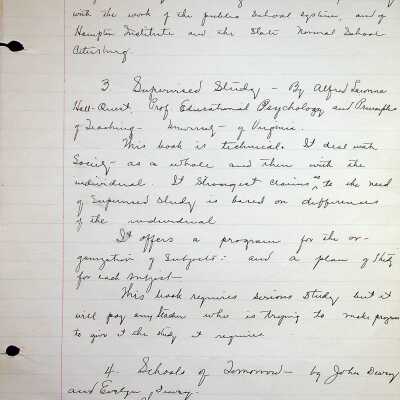 with the work of the public School system, and of
Hampton Institute and the State Normal School
Petersburg.
3. Supervised Study - By Alfred Lawrence
Hall-Quest, Prof. Educational Psychology and Principles
of Teaching - University of Virginia.
This book is technical. It deal with
Society as a whole and then with the
individual. It Strongest claims as to the need
of Supervised Study is based on differences
of the individual
It offers a program for the or-
ganization of Subjects: and a plan of Study
for each subject-
This book requires serious Study but it
will pay any teacher who is trying to make progress
to give it the study it requires
4. Schools of Tomorrow - by John Dewey
and Evelyn Dewey.